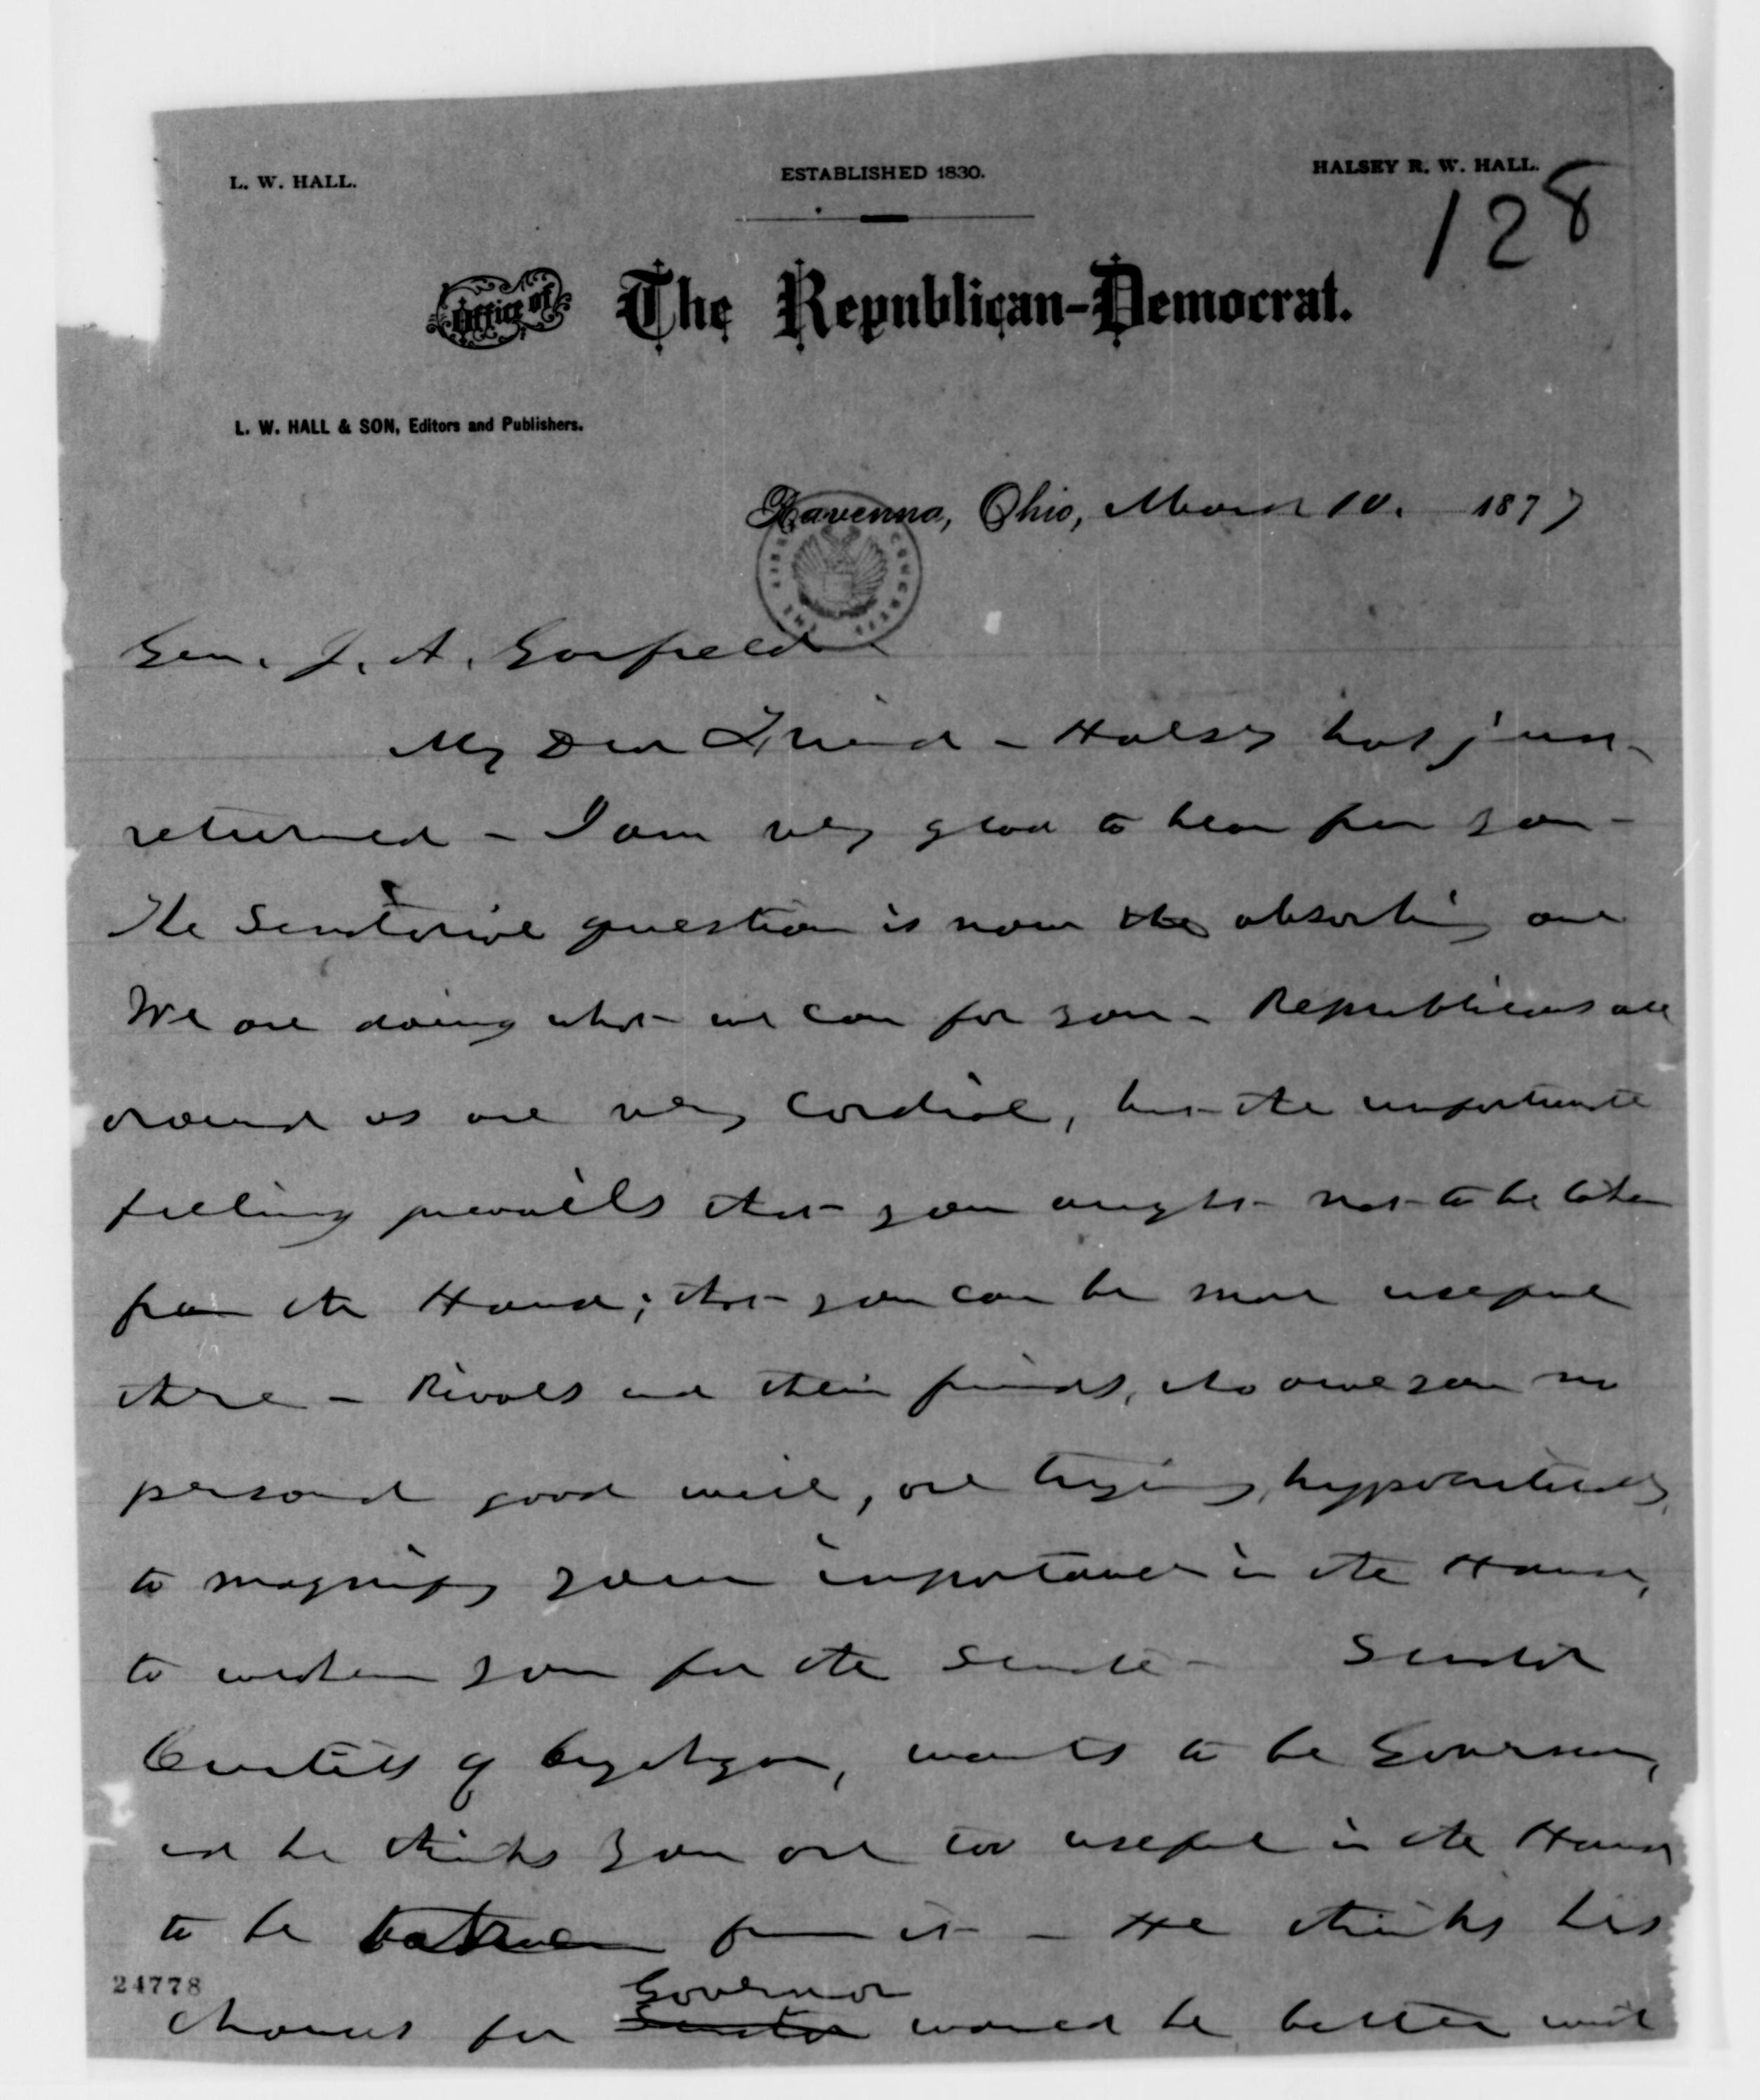 L. W. HALL.
ESTABLISHED 1830.
HALSEY R. W. HALL.
128
Office of The Republican-Democrat.
L. W. HALL & SON, Editors and Publishers.
Ravenna, Ohio, March 10. 1877
Gen. J. A. Garfield
My Dear Friend - Halsey has just
returned - I am very glad to hear from you -
The Senatorial question is now the absorbing one
We are doing what we can for you - Republicans all
around us are very cordial, but the unfortunate
feeling prevails that you ought not to be taken
from the House; that you can be more useful
there - Rivals and their friends, who owe you no
personal good will, are trying, hypocritically,
to magnify your importance in the House,
to weaken you for the Senate - Senator
of Cuyahoga, wants to be Governor,
and he thinks you are too useful in the House
to be taken from it - He thinks his
24778
Governor
chances for Senator would be better with